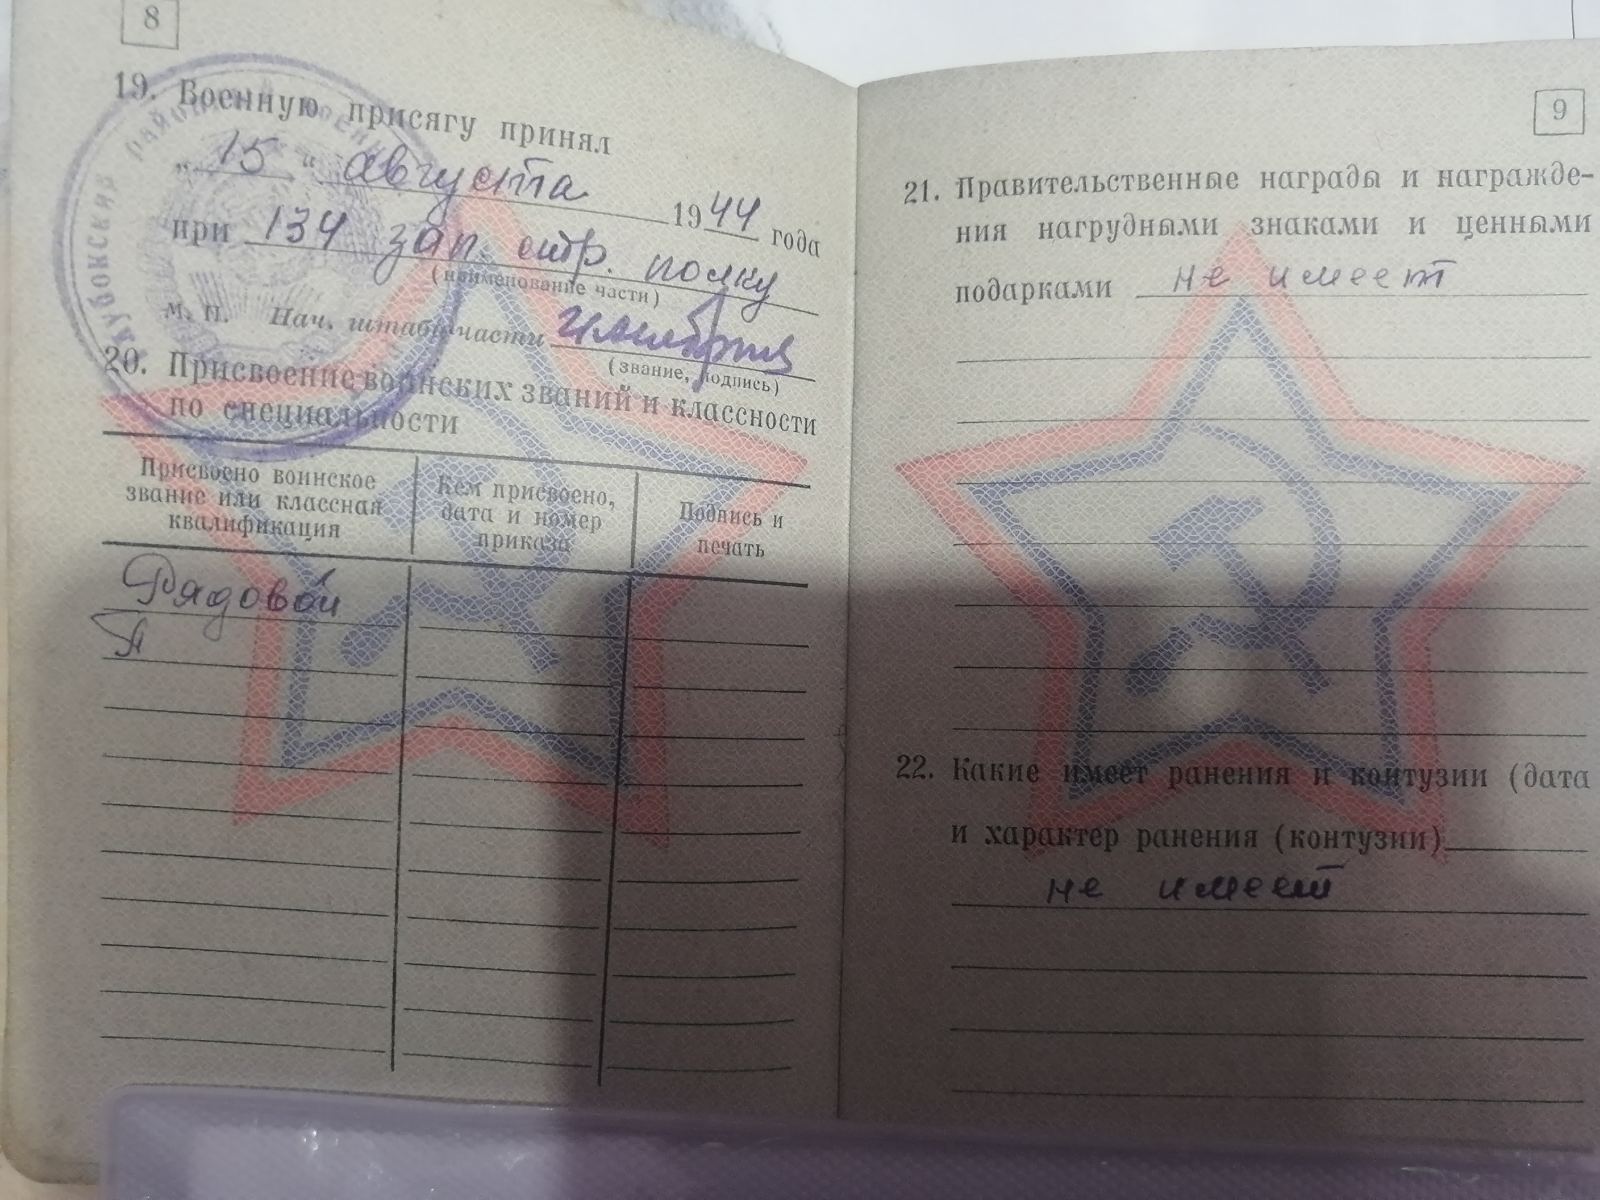 8
19. Военную присягу принял
„ 15 “ августа 1944 года
при 134 зап. стр. полку
(наименование части)
М. П. Нач. штаба части
(звание, подпись)
20. Присвоение воинских званий и классности
по специальности
Присвоено воинское звание или классная квалификация
Кем присвоено, дата и номер приказа
Подпись и печать
Рядовой
9
21. Правительственные награды и награжде-
ния нагрудными знаками и ценными
подарками не имеет
22. Какие имеет ранения и контузии (дата
и характер ранения (контузии)
не имеет